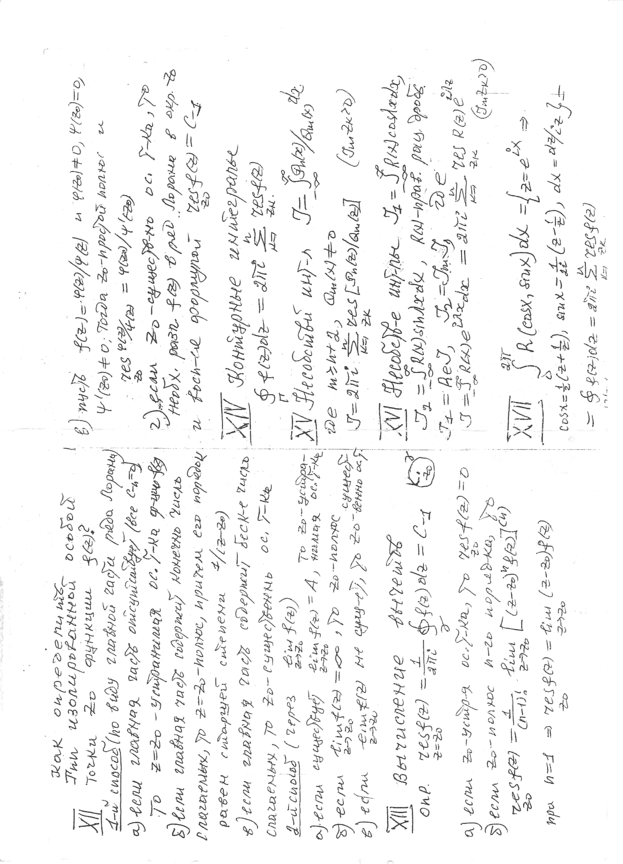 Как определить
XII тип изолированной особой
точки z₀ функции f(z)?
1-й способ (по виду главной части ряда Лорана)
а) если главная часть отсутствует (все c₋ₙ=0)
то z=z₀ - устранимая ос. т-ка
б) если главная часть содержит конечно число
слагаемых, то z=z₀-полюс, причем его порядок
равен старшей степени 1/(z-z₀)
в) если главная часть содержит беск-е число
слагаемых, то z₀-существенно ос. т-ка
2-й способ (через lim f(z)
z→z₀
а) если существует lim f(z) = A, то z₀-устра-
z→z₀ нимая ос. т-ка
б) если lim f(z) = ∞, то z₀-полюс
z→z₀
в) если lim f(z) не сущ-ет, то z₀ существ
z→z₀ венно ос. т
XIII Вычисление вычетов
опр. res f(z) = 1/2πi ∮ f(z)dz = C₋₁
z=z₀ γ
а) если z₀-устр ос. т-ка, то res f(z)=0
z₀
б) если z₀-полюс n-го порядка, то
res f(z) = 1/(n-1)! lim [(z-z₀)ⁿ f(z)]
z₀ z→z₀
при n=1 ⇒ res f(z) = lim (z-z₀)f(z)
z₀ z→z₀
в) пусть f(z)=φ(z)/ψ(z) и φ(z₀)≠0, ψ(z₀)=0,
ψ'(z₀)≠0. Тогда z₀-простой полюс и
res φ(z)/ψ(z) = φ(z₀)/ψ'(z₀)
z₀
г) если z₀-существенно ос. т-ка, то
необх. разл f(z) в ряд Лорана в окр. z₀
и восп-ся формулой res f(z) = C₋₁
z₀
XIV Контурные интегралы
∮ f(z)dz = 2πi Σ res f(z)
Γ k=1 zk
XV Несобств-й инт-л J=∫ Pn(x)/Qm(x) dx
-∞
где m≥n+2, Qm(x)≠0
J=2πi Σ res [Pn(z)/Qm(z)] (Im zk>0)
k=1 zk
XVI Несобств-е инт-лы J₁=∫ R(x)cosλxdx,
J₂=∫ R(x)sinλxdx, R(x)-прав. рац. дробь
J₁=ReJ, J₂=ImJ, где
J=∫ R(x)e^{iλx}dx = 2πi Σ res R(z)e^{iλz}
-∞ k=1 zk (Im zk>0)
XVII ∫ R(cosx, sinx)dx = {z=e^{ix} ⇒
0
cosx=½(z+1/z), sinx=1/2i(z-1/z), dx=dz/iz} =
= ∮ f(z)dz = 2πi Σ res f(z)
k=1 zk